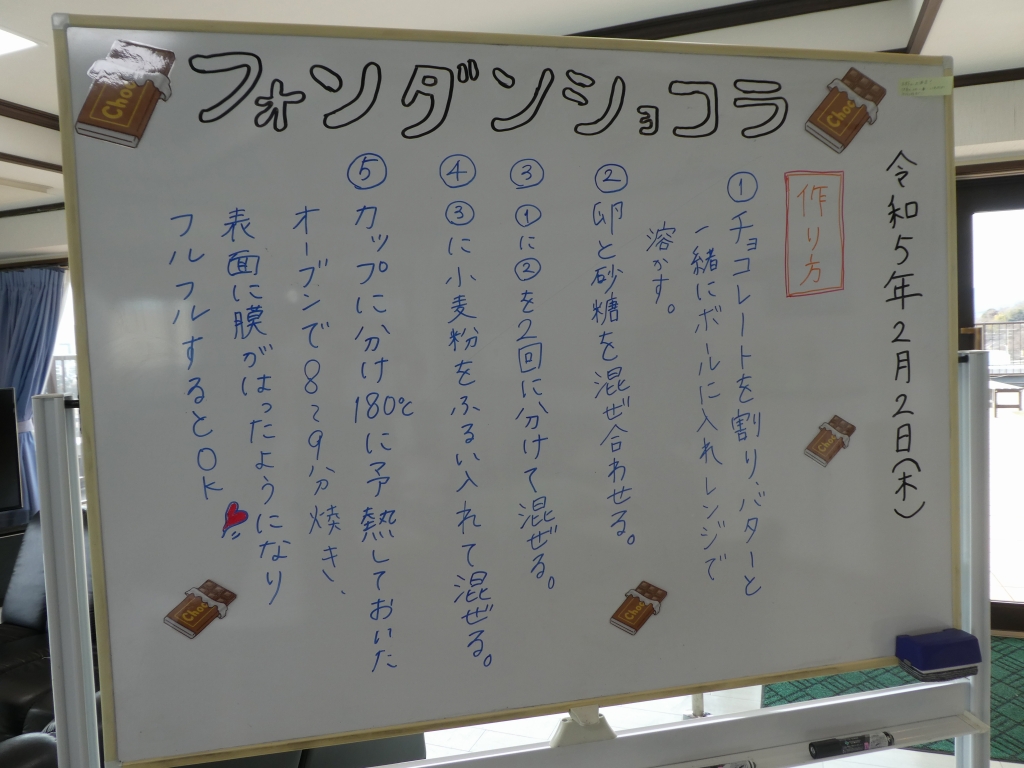 フォンダンショコラ
令和5年2月2日(木)
作り方
①チョコレートを割り、バターと
一緒にボールに入れレンジで
溶かす。
②卵と砂糖を混ぜ合わせる。
③①に②を2回に分けて混ぜる。
④③に小麦粉をふるい入れて混ぜる。
⑤カップに分け180℃に予熱しておいた
オーブンで8〜9分焼き、
表面に膜がはったようになり
フルフルするとOK
Choc
Choc
Choc
Choc
Choc